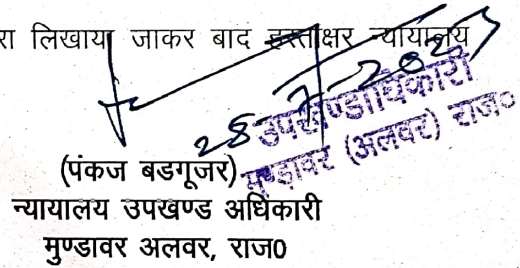 रा लिखाया जाकर बाद हस्ताक्षर न्यायालय
28-7-202
उपखण्डाधिकारी
मुण्डावर (अलवर) राज०
(पंकज बडगूजर)
न्यायालय उपखण्ड अधिकारी
मुण्डावर अलवर, राज0